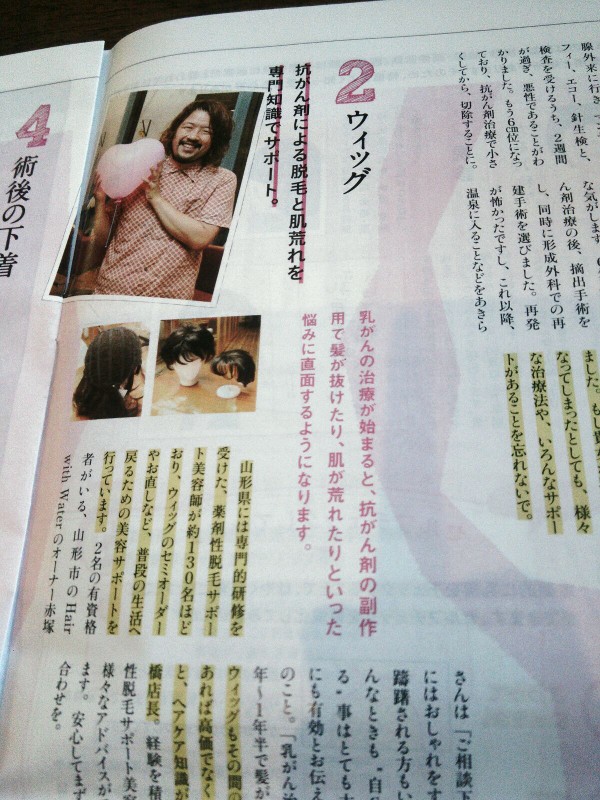 腺外来に行き、マ
フィー、エコー、針生検と、
検査を受けるうち、2週間
が過ぎ、悪性であることがわ
かりました。もう6cm位になっ
ており、抗がん剤治療で小さ
くしてから、切除することに。
な気がします
ん剤治療の後、摘出手術を
し、同時に形成外科での再
建手術を選びました。再発
が怖かったですし、これ以降、
温泉に入ることなどをあきら
ました。もし
なってしまったとしても、様々
な治療法や、いろんなサポー
トがあることを忘れないで。
2 ウィッグ
抗がん剤による脱毛と肌荒れを
専門知識でサポート。
乳がんの治療が始まると、抗がん剤の副作
用で髪が抜けたり、肌が荒れたりといった
悩みに直面するようになります。
山形県には専門的研修を
受けた、薬剤性脱毛サポー
ト美容師が約130名ほど
おり、ウィッグのセミオーダー
やお直しなど、普段の生活へ
戻るための美容サポートを
行っています。2名の有資格
者がいる、山形市のHair
with Waterのオーナー赤塚
さんは「ご相談下
にはおしゃれをす
躊躇される方もい
んなときも“自
る”事はとても大
にも有効とお伝え
のこと。「乳がん治
年〜1年半で髪が
ウィッグもその間の
あれば高価でなく
と、ヘアケア知識が
橋店長。経験を積
性脱毛サポート美容
様々なアドバイスが
ます。安心してまず
合わせを。
4 術後の下着